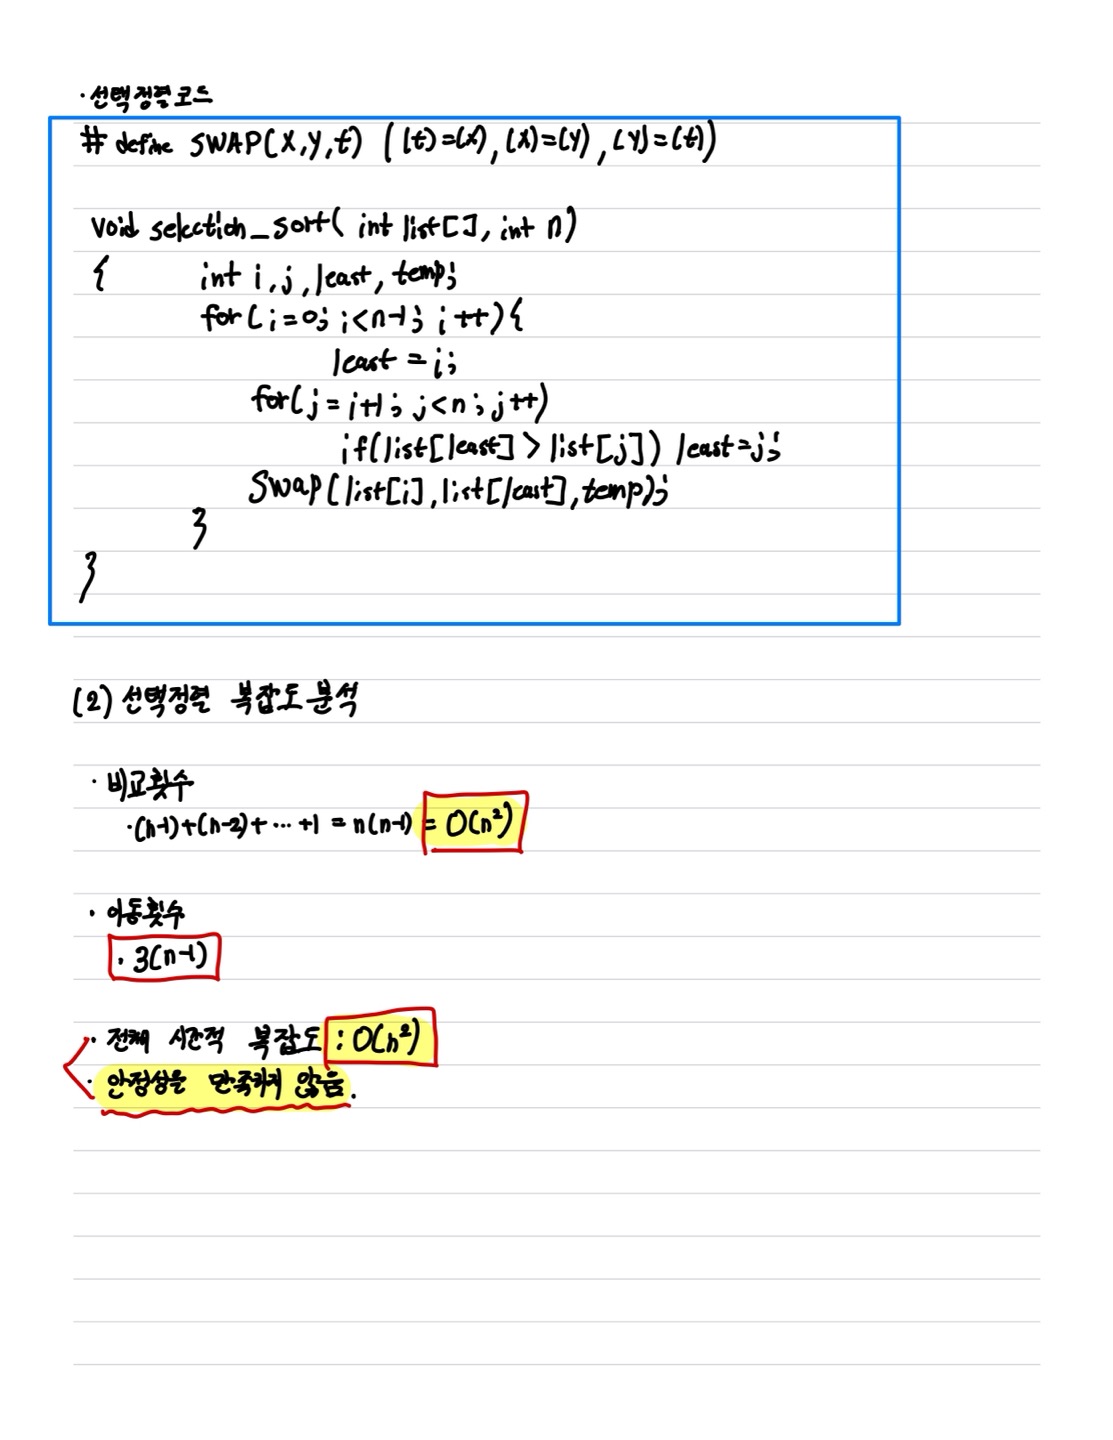 · 선택정렬코드
# define SWAP(X,Y,t) ((t)=(X), (X)=(Y), (Y)=(t))
void selection_sort( int list[], int n)
{ int i,j,least, temp;
for(i=0; i<n-1; i++){
least = i;
for(j=i+1; j<n; j++)
if(list[least] > list[j]) least=j;
Swap(list[i],list[least],temp);
}
}
(2) 선택정렬 복잡도분석
· 비교횟수
·(n-1)+(n-2)+ ··· +1 = n(n-1) = O(n²)
· 이동횟수
· 3(n-1)
· 전체 시간적 복잡도 : O(n²)
· 안정성을 만족하지 않음.